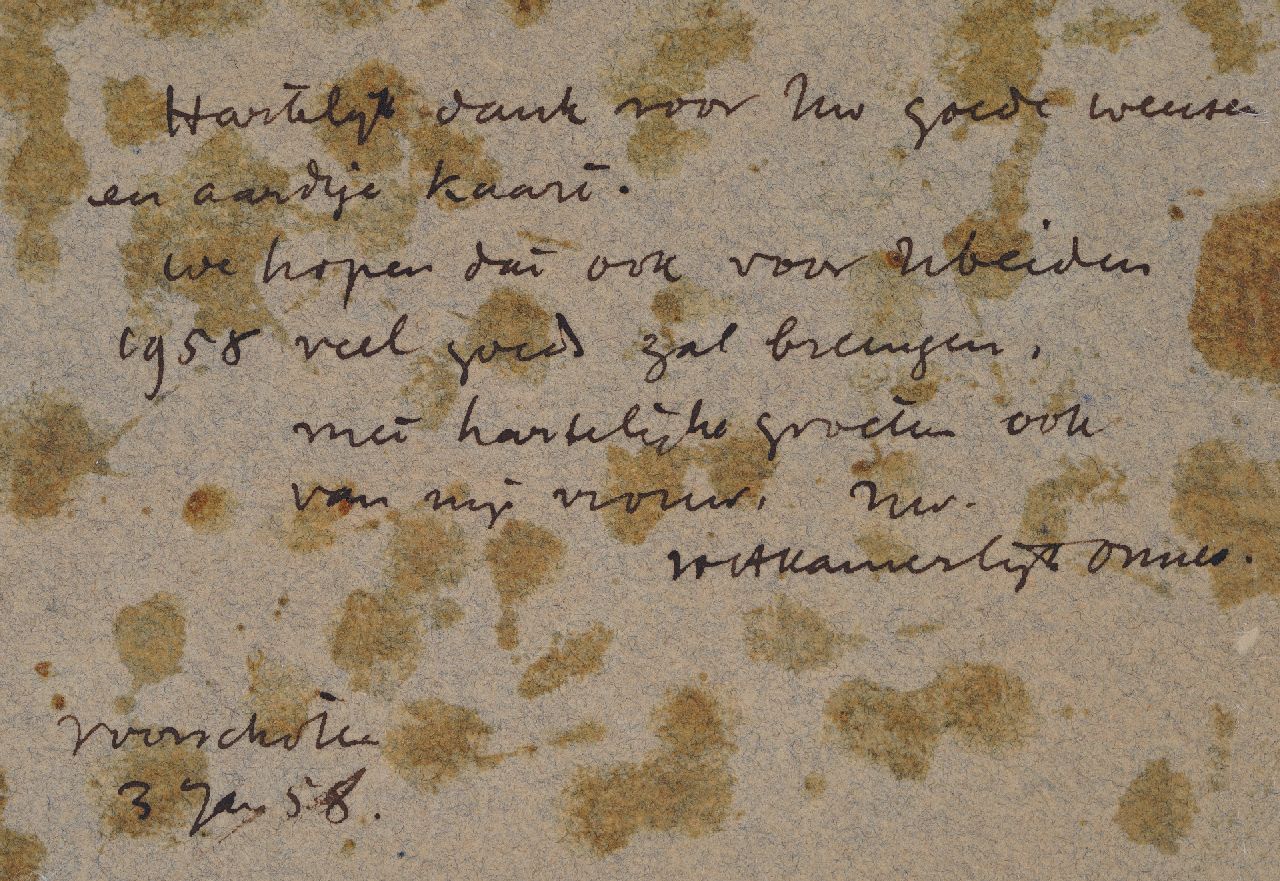 Hartelijk dank voor Uw goede wensen
en aardige kaart.
we hopen dat ook voor U beiden
1958 veel goeds zal brengen.
met hartelijke groeten ook
van mijn vrouw. Uw.
HHKamerlingh Onnes.
Voorschoten
3 Jan 58.